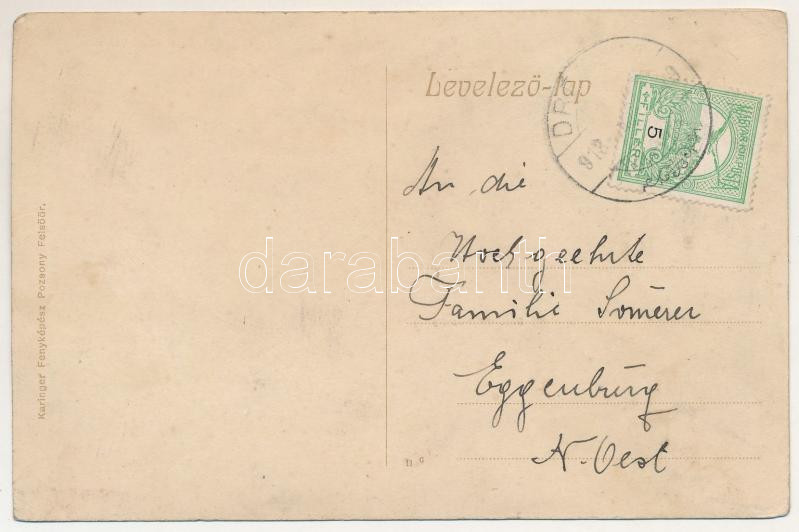 Levelező-lap
MAGYAR KIR. POSTA
5
FILLÉR
DR
913
An die
Hochgeehrte
Familie Somerer
Eggenburg
N. Oest
Karinger Fenyképész Pozsony Felsöör.
darabanth